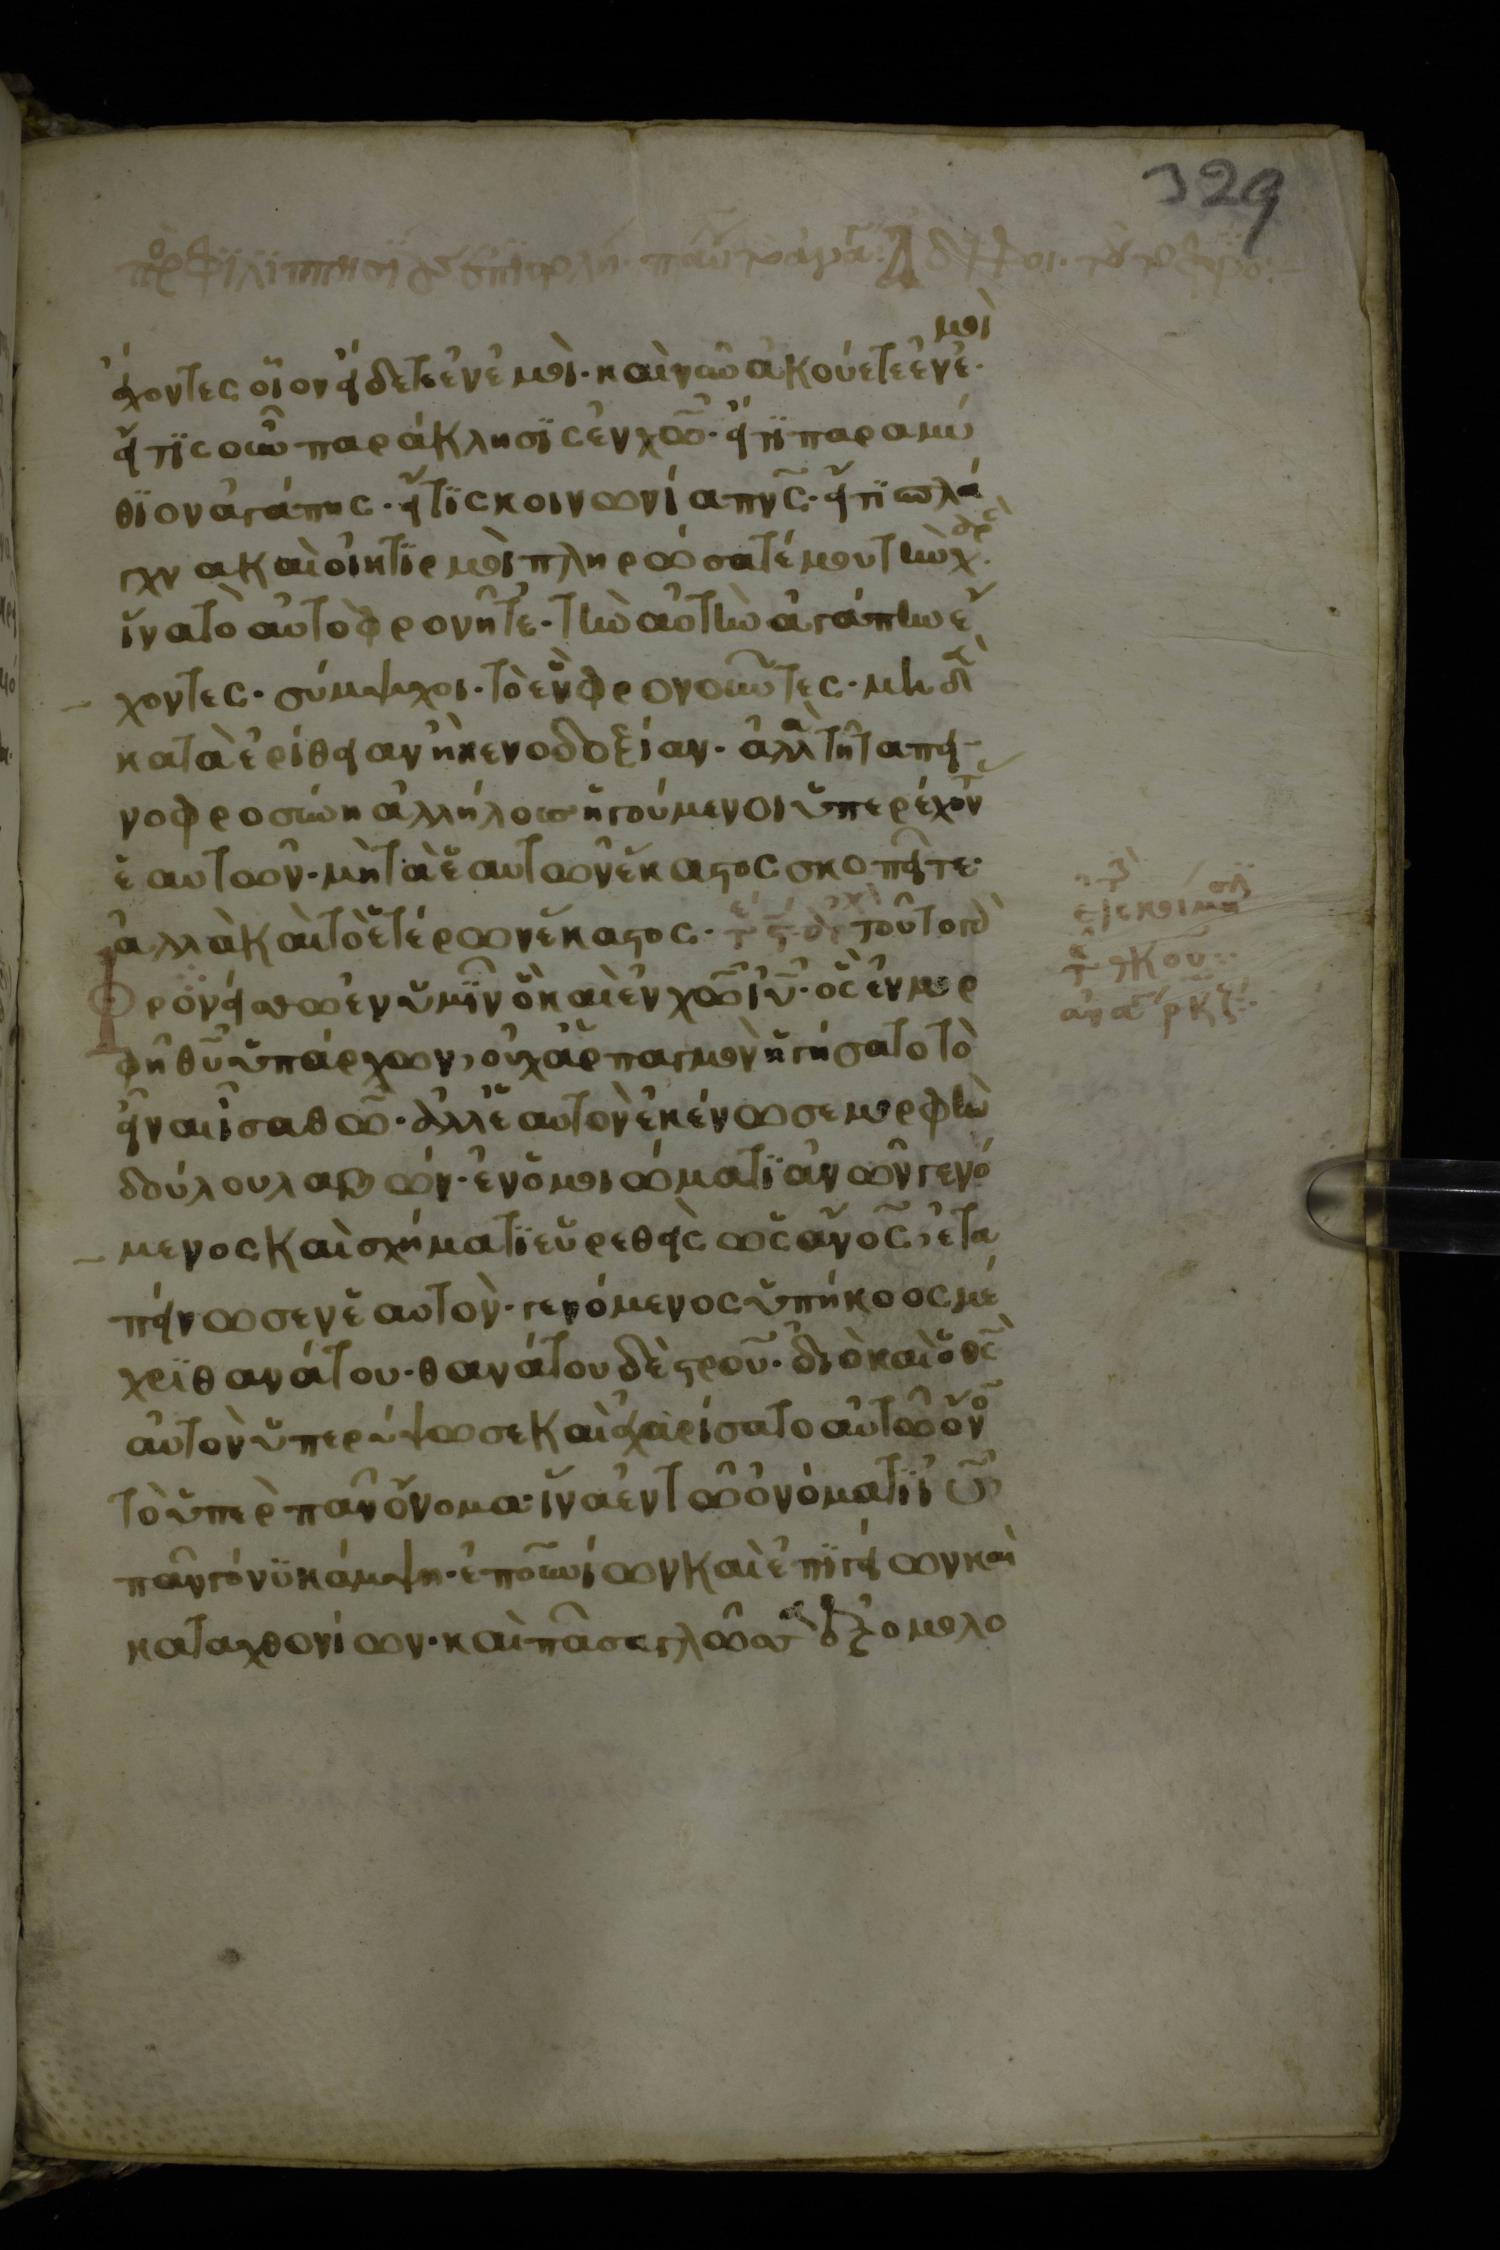 329
ἔχοντες οἷον εἴδετε ἐν ἐμοὶ· καὶ νῦν ἀκούετε ἐν ἐμοὶ·
εἴ τϊς οὖν παράκλησϊς ἐν χῶ· εἴ τϊ παραμύ
θϊον ἀγάπης· εἴ τϊς κοινωνία πνς· εἴ τϊ σπλά
γχνα καὶ οἰκτϊρμοὶ πληρώσατέ μου τὴν χαρὰν
ἵνα τὸ αὐτὸ φρονῆτε· τὴν αὐτὴν ἀγάπην ἔ
χοντες· σύμψυχοι· τὸ ἓν φρονοῦντες· μηδὲν
κατὰ ἐρίθειαν ἢ κενοδοξίαν· ἀλλὰ τῆ ταπει
νοφροσύνη ἀλλήλους ἡγούμενοι ὑπερέχοντας
ἑαυτῶν· μὴ τὰ ἑαυτῶν ἕκαστος σκοπεῖτε·
ἀλλὰ καὶ τὸ ἑτέρων ἕκαστος· τοῦτο γὰρ
Φρονείσθω ἐν ὑμῖν ὃ καὶ ἐν χῶ ιυ· ὃς ἐν μορ
φῆ θυ ὑπάρχων, οὐχ ἁρπαγμὸν ἡγήσατο τὸ
εἶναι ἴσα θω· ἀλλ' ἑαυτὸν ἐκένωσε μορφὴν
δούλου λαβών· ἐν ὁμοιώματϊ ανων γενό
μενος καὶ σχήματϊ εὑρεθεὶς ὡς ανος, ἐτα
πείνωσεν ἑαυτὸν· γενόμενος ὑπήκοος μέ
χρϊ θανάτου· θανάτου δὲ στρου· διὸ καὶ ὁ θς
αὐτὸν ὑπερύψωσε καὶ ἐχαρίσατο αὐτῶ ὄνο
τὸ ὑπὲρ πᾶν ὄνομα· ἵνα ἐν τῶ ὀνόματϊ ιυ
πᾶν γόνϋ κάμψη· ἐπουνίων καὶ ἐπϊγείων καὶ
καταχθονίων· καὶ πᾶσα γλῶσσα ἐξομολο